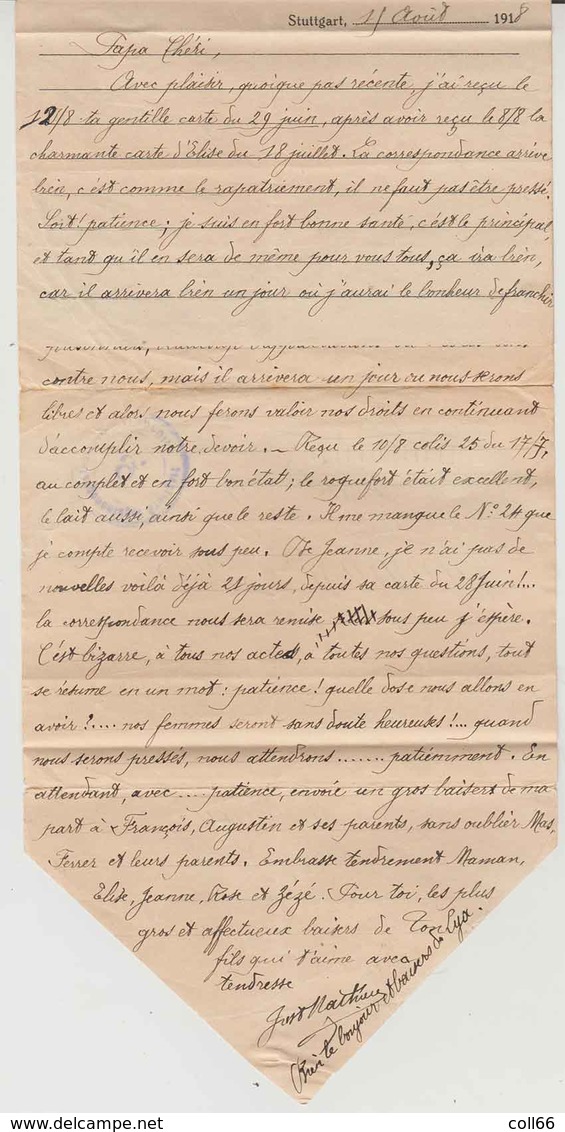 Stuttgart, 15 Août 1918
Papa Chéri,
Avec plaisir, quoique pas récente, j'ai reçu le
12/8 ta gentille carte du 29 juin, après avoir reçu le 8/8 la
charmante carte d'Elise du 18 juillet. La correspondance arrive
bien, c'est comme le rapatriement, il ne faut pas être pressé.
Soit! patience; je suis en fort bonne santé, c'est le principal,
et tant qu'il en sera de même pour vous tous, ça ira bien,
car il arrivera bien un jour où j'aurai le bonheur de franchir
contre nous, mais il arrivera un jour ou nous serons
libres et alors nous ferons valoir nos droits en continuant
d'accomplir notre devoir. – Reçu le 10/8 colis 25 du 17/7,
au complet et en fort bon état; le roquefort était excellent,
le lait aussi, ainsi que le reste. Il me manque le N° 24 que
je compte recevoir sous peu. De Jeanne, je n'ai pas de
nouvelles voilà déjà 21 jours, depuis sa carte du 28 Juin!...
la correspondance nous sera remise sous peu j'espère.
C'est bizarre, à tous nos actes, à toutes nos questions, tout
se résume en un mot: patience! quelle dose nous allons en
avoir?.... nos femmes seront sans doute heureuses!... quand
nous serons pressés, nous attendrons ....... patiemment. En
attendant, avec .... patience, envoie un gros baisers de ma
part à François, Augustin et ses parents, sans oublier Mas,
Ferrer et leurs parents. Embrasse tendrement Maman,
Elise, Jeanne, Rose et Zézé. Pour toi, les plus
gros et affectueux baisers de Ton
fils qui t'aime avec
tendresse
Just Mathieu
Bien le bonjour et baisers de Lya.
coll66